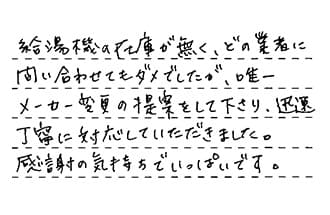 給湯機の在庫が無く、どの業者に
問い合わせてもダメでしたが、唯一
メーカー変更の提案をして下さり、迅速
丁寧に対応していただきました。
感謝の気持ちでいっぱいです。